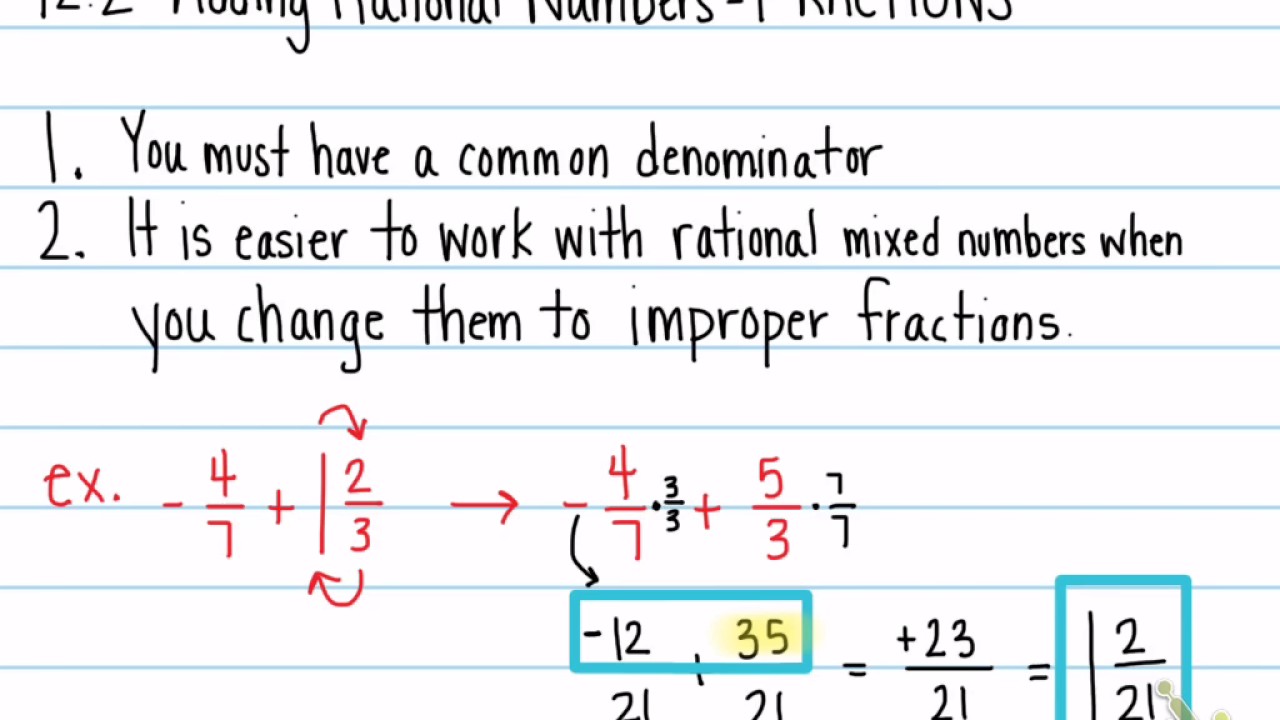 12.2 Adding Rational Numbers - FRACTIONS
1. You must have a common denominator
2. It is easier to work with rational mixed numbers when
you change them to improper fractions.
ex. - 4/7 + 1 2/3 → - 4/7 · 3/3 + 5/3 · 7/7
-12/21 + 35/21 = +23/21 = 1 2/21